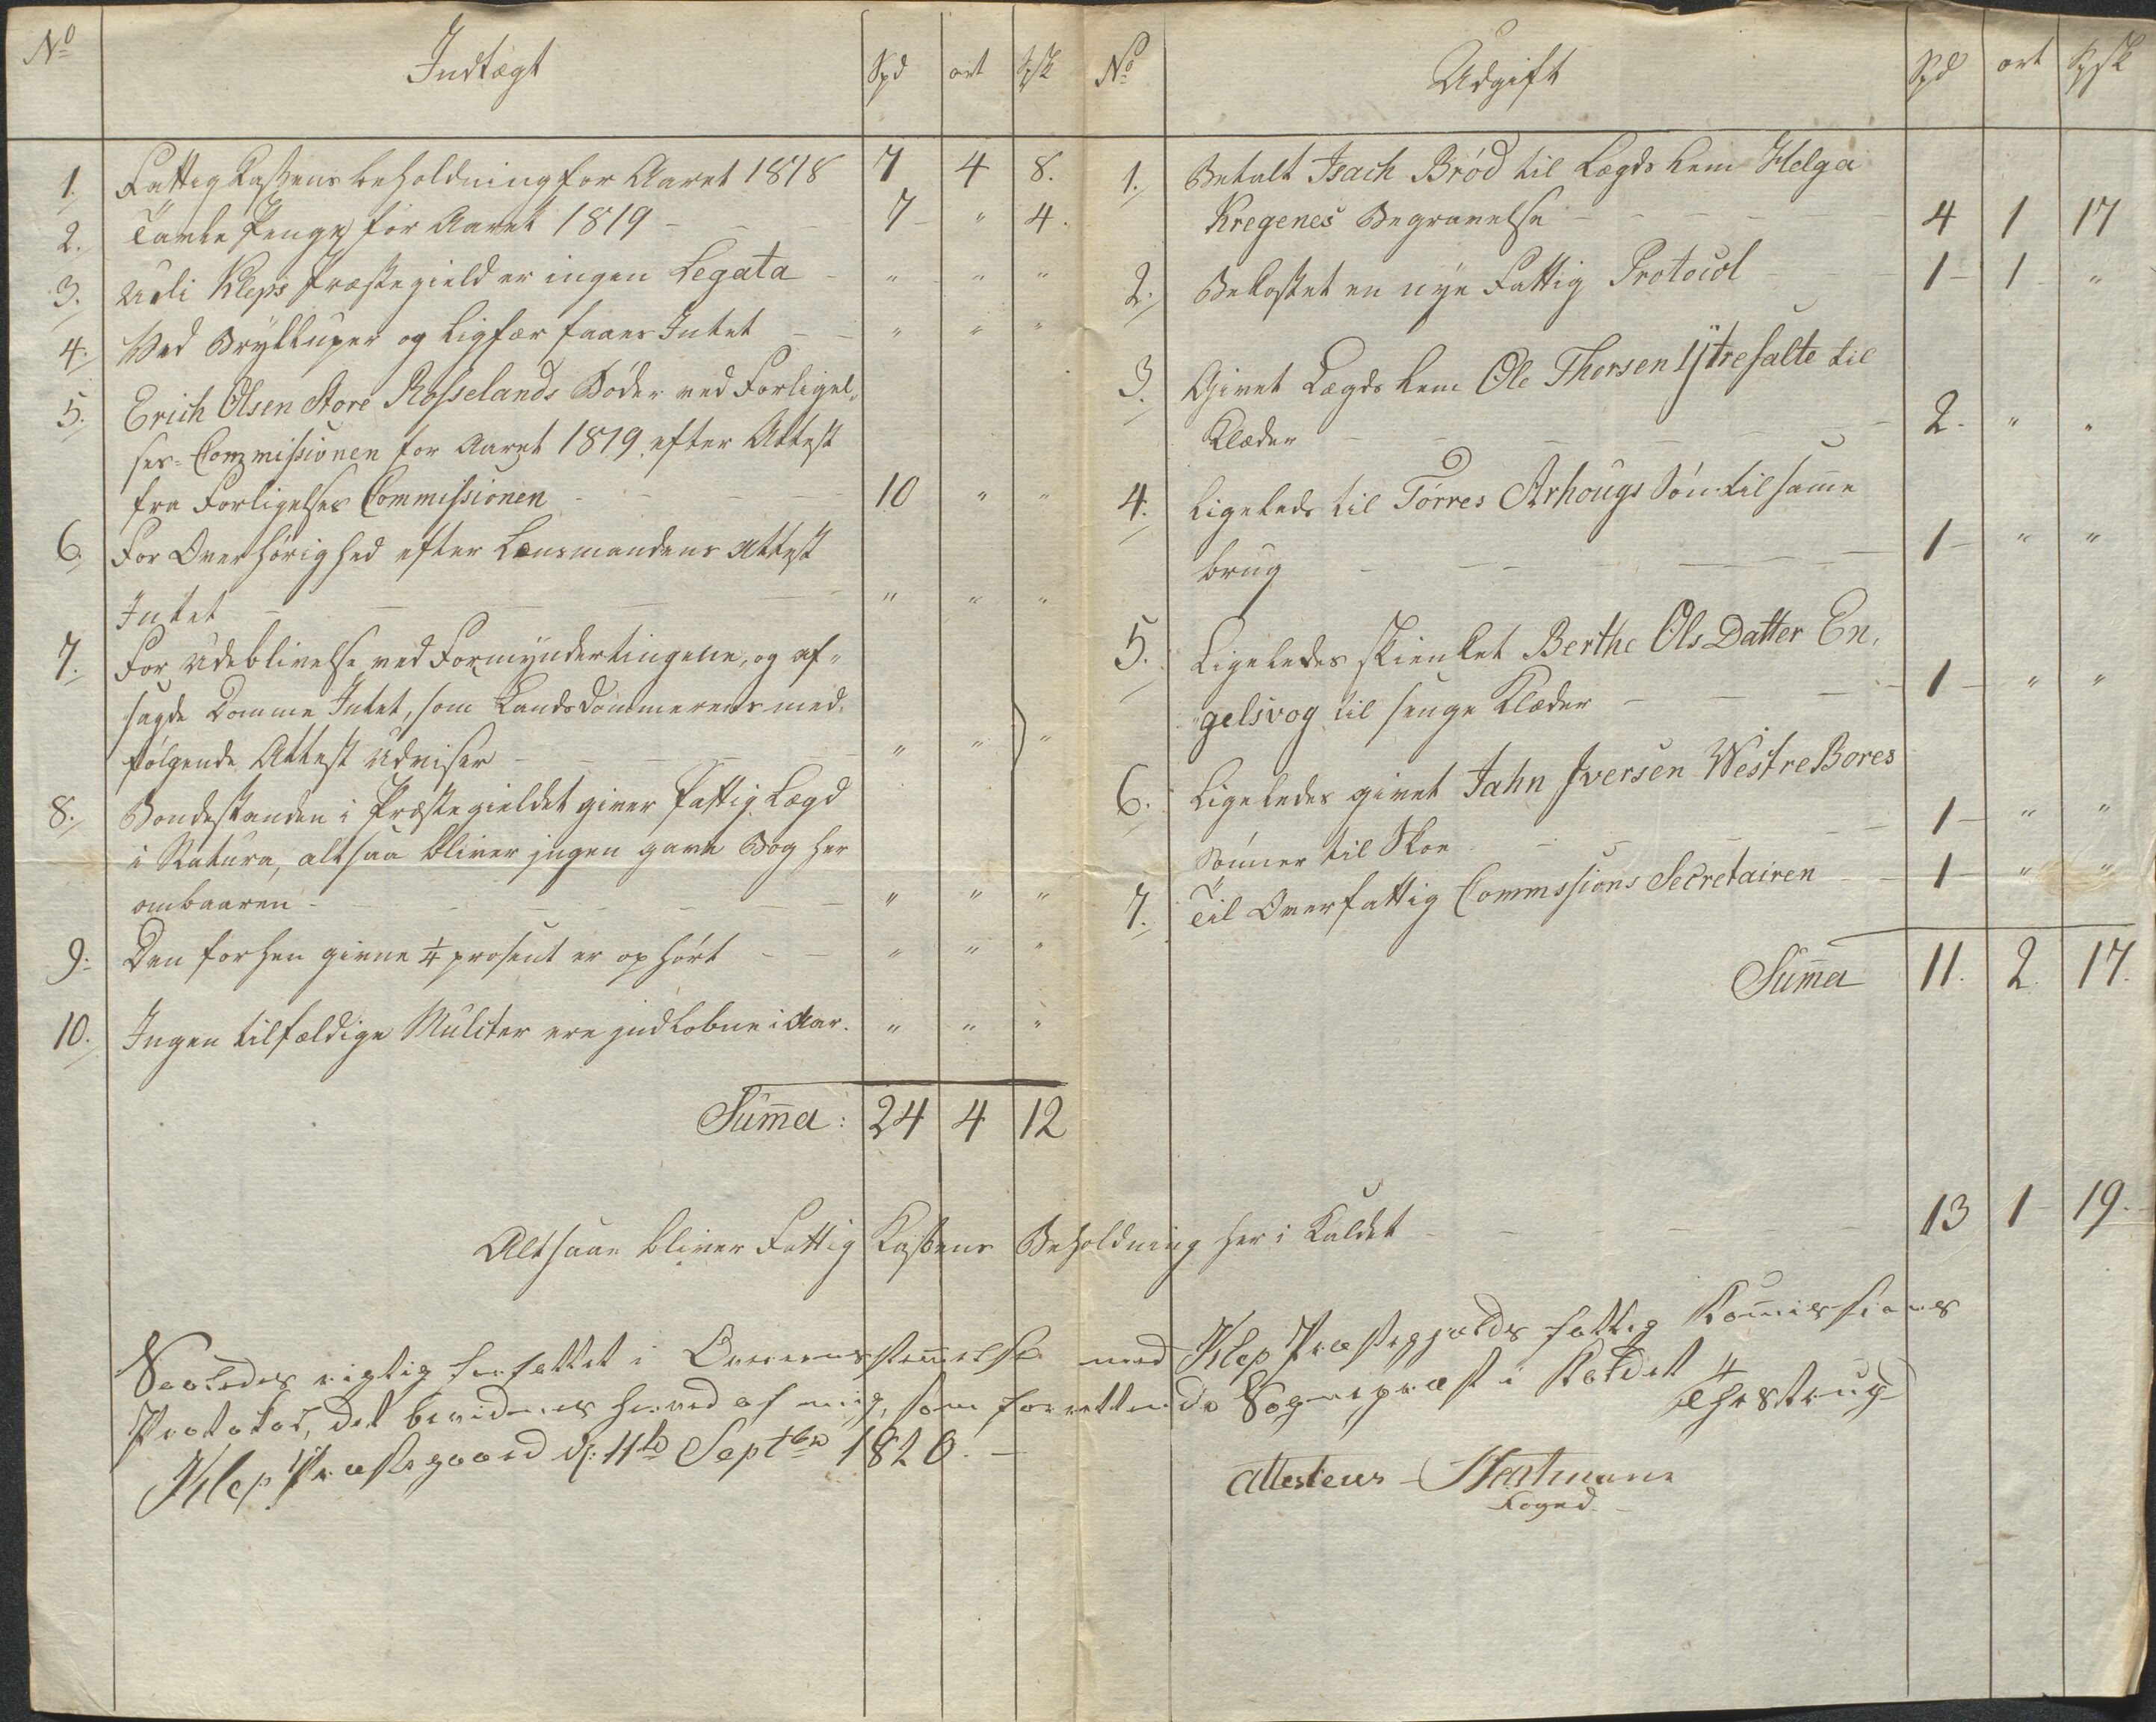 No Indtægt Spd ort Spsk
1. Fattig Kaßens beholdning for Aaret 1818 7 4 8.
2. Tavle Penge for Aaret 1819 - - - 7 - " 4.
3. Udi Kleps Præstegield er ingen Legata - " " "
4. Ved Brylluper og Ligfær faaes Intet - - " " "
5. Erich Olsen Store Rosselands Böder ved Forligel-
ses-Commissionen for Aaret 1819 efter Attest
fra Forligelses Commissionen - - - - 10 " "
6. For Overhörighed efter Lensmandens Attest
Intet - - - - - " " "
7. For Udeblivelse ved Formyndertingene, og af-
sagde Domme Intet, som Landsdommerens med-
fölgende Attest Udviser - - - - " " "
8. Bondestanden i Præstegieldet giver Fattig Lægd
i Natura, altsaa bliver jngen gave Bog her
ombaaren - - - - - - " " "
9. Den forhen givne 1/4 prosent er ophört - - " " "
10. Ingen tilfældige Mulcter ere jndkobne i Aar. " " "
Sum̄a: 24 4 12
No Udgift Spd ort Spsk
1. Betalt Isach Bröd til Lægds Lem Helga
Kregenes Begravelse - - - - 4 1 17
2. Bekostet en nye Fattig Protocol - - 1 - 1 "
3. Givet Lægds Lem Ole Thorsen Ÿtresalte til
Klæder - - - - - - 2. " "
4. Ligeleds til Törres Arhougs Sön til sam̄e
brug - - - - - 1 - " "
5. Ligeledes skienket Berthe Ols Datter En-
gelsvog til senge Klæder - - - 1 - " "
6. Ligeledes givet Jahn Iversen Westre Bores
Sönner til Skoe - - - - 1 - " "
7. Til Overfattig Commssions Secretairen - - 1 - " "
Sum̄a 11. 2. 17.
Altsaa bliver Fattig Kaßens Beholdning her i Kaldet - - - 13 1 - 19.
Saaledes rigtig forfattet i Overensstem̄else med Klep Præstegjælds fattig Kom̄issions
Protokol, det bevidnes herved af mig, som forrettende Sognepræst i Kaldet
Klep Præstegaard d: 11te Septbr 1820. -
Attesteres -
Foged -